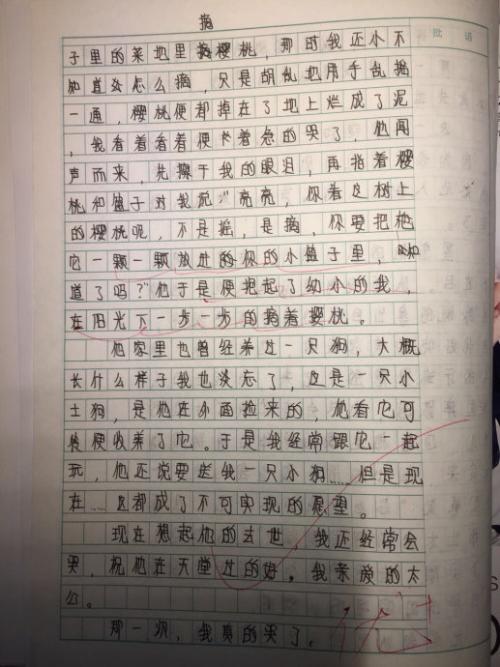 摘
批 语
子里的菜地里摘樱桃，那时我还小不
知道该怎么摘，只是胡乱地用手乱摇
一通，樱桃便都掉在了地上烂成了泥
，我看着看着便卡着急的哭了，他闻
声而来，先擦干我的眼泪，再指着樱
桃和篮子对我说“亮亮，你看这树上
的樱桃呢，不是摇，是摘，你要把他
它一颗一颗放进的你的小篮子里，知
道了吗？”他于是便抱起了幼小的我，
在阳光下一步一步的摘着樱桃。
他家里也曾经养过一只狗，大概
长什么样子我也淡忘了，这是一只小
土狗，是他在外面捡来的，他看它可
便收养了它。于是我经常跟它一起
玩，他还说要送我一只小狗……但是现
在……这都成了不可实现的愿望。
现在想起他的去世，我还经常会
哭，祝他在天堂过的好。我亲爱的太
公。
那一次，我真的哭了。
优